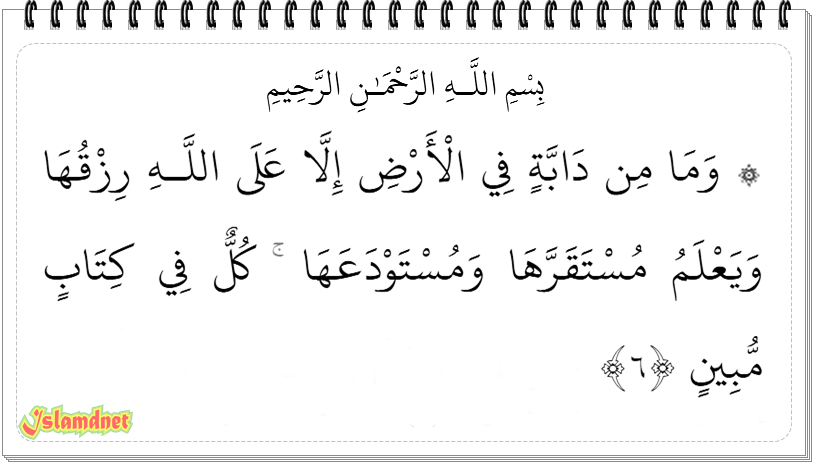 بِسْمِ اللَّـهِ الرَّحْمَـٰنِ الرَّحِيمِ
۞ وَمَا مِن دَابَّةٍ فِي الْأَرْضِ إِلَّا عَلَى اللَّـهِ رِزْقُهَا
وَيَعْلَمُ مُسْتَقَرَّهَا وَمُسْتَوْدَعَهَا ۚ كُلٌّ فِي كِتَابٍ
مُّبِينٍ ﴿٦﴾
Islamdnet